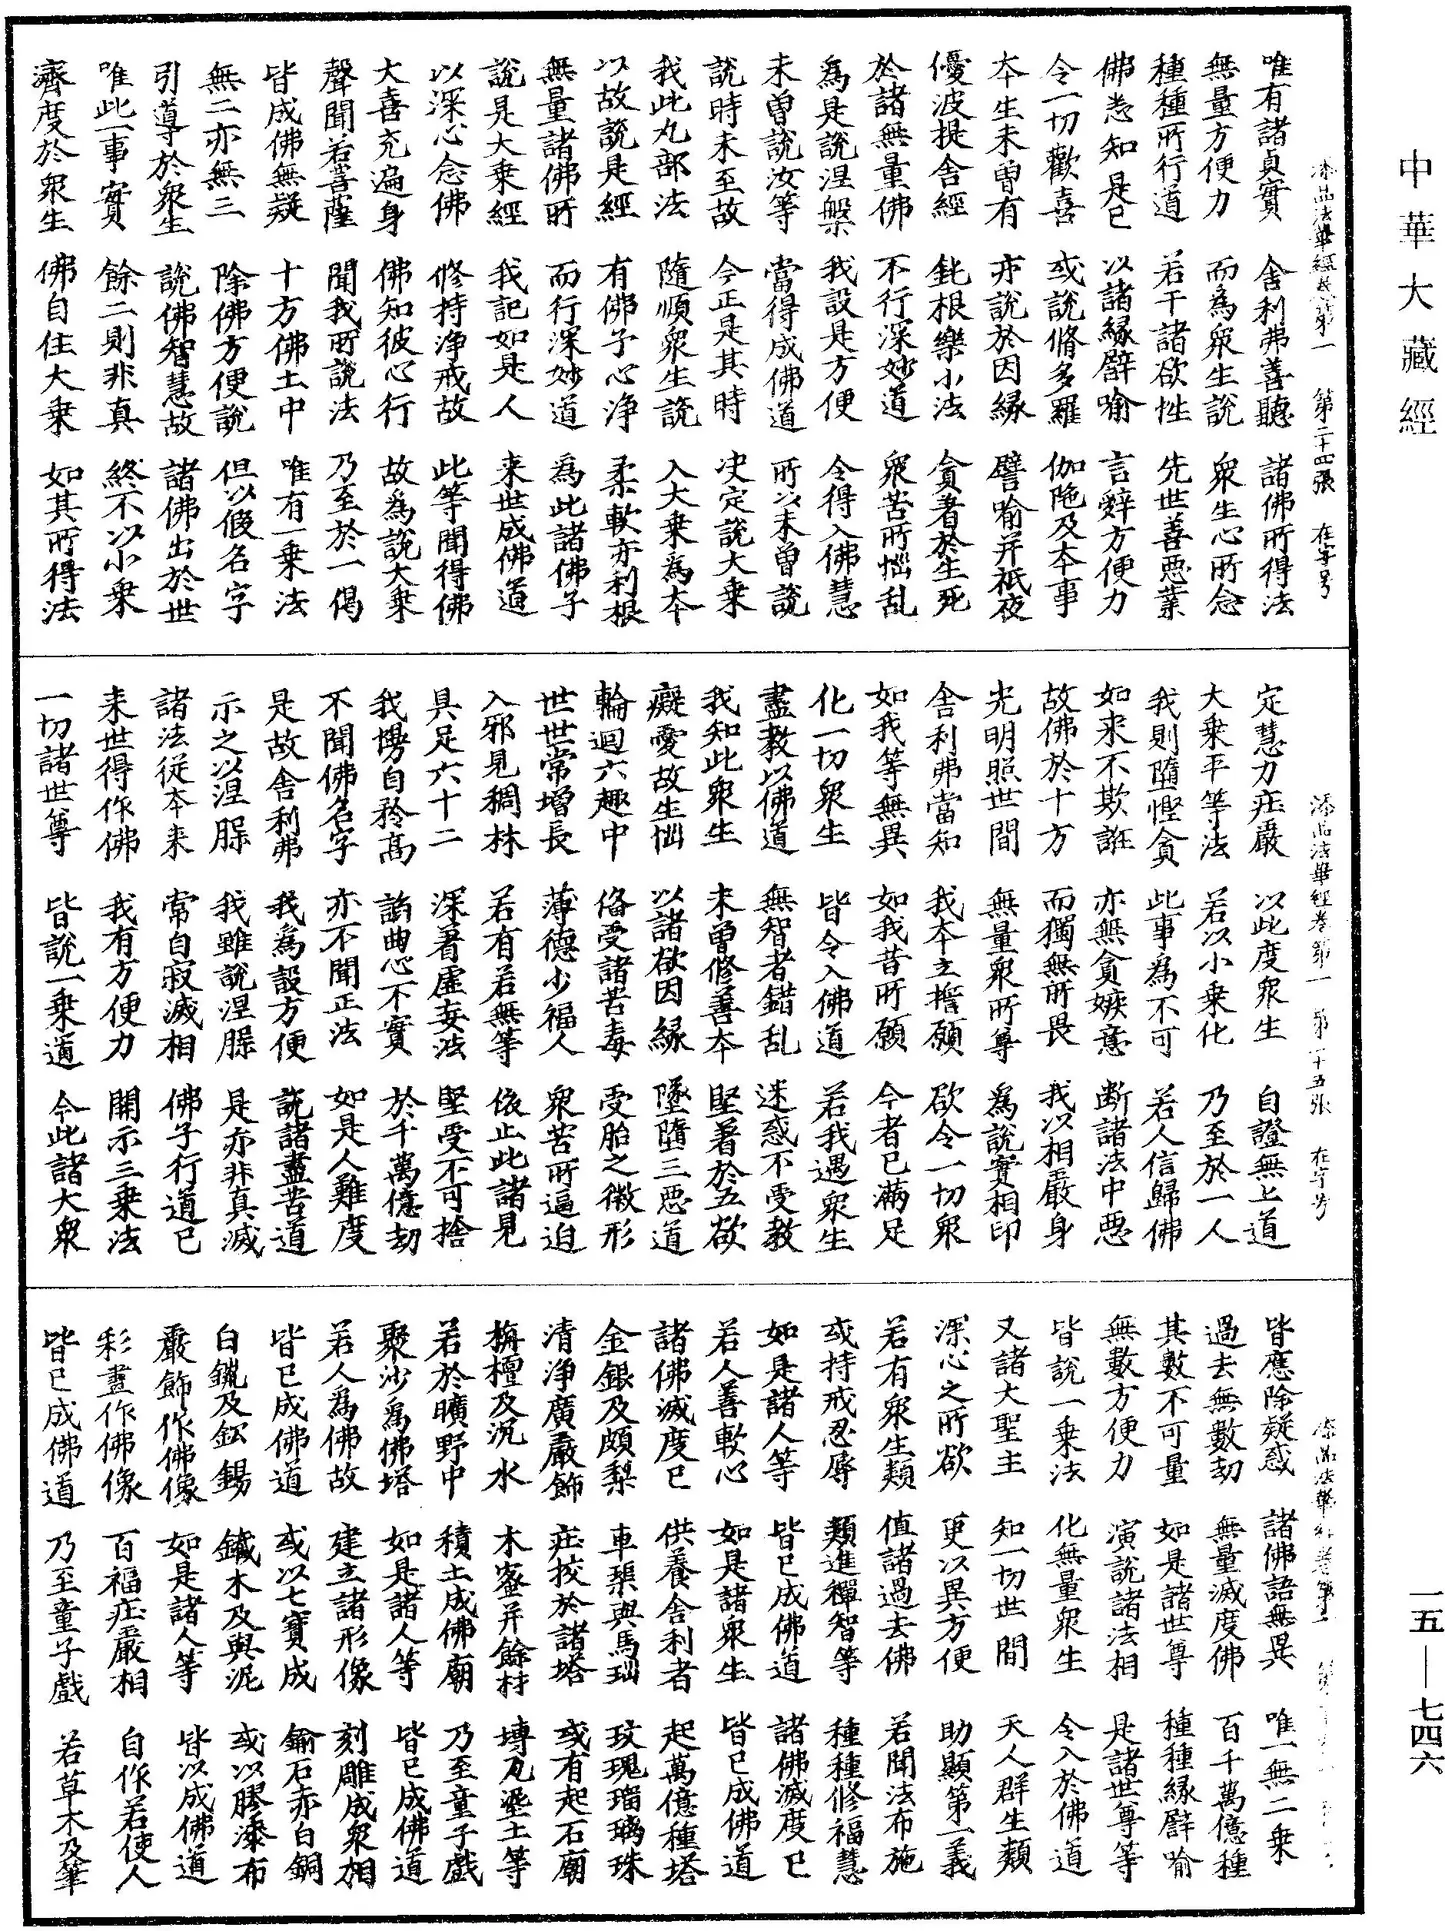 中華大藏經
添品法華經卷第一 第二十四張 在字号
唯有諸真實 舍利弗善聽 諸佛所得法
無量方便力 而為衆生說 衆生心所念
種種所行道 若干諸欲性 先世善惡業
佛悉知是已 以諸緣譬喻 言辭方便力
令一切歡喜 或說脩多羅 伽陁及本事
本生未曽有 亦說於因緣 譬喻并祇夜
優波提舍經 鈍根樂小法 貪著於生死
於諸無量佛 不行深妙道 衆苦所惱乱
為是說涅槃 我設是方便 令得入佛慧
未曽說汝等 當得成佛道 所以未曽說
說時未至故 今正是其時 决定說大乗
我此九部法 隨順衆生說 入大乗為本
以故說是經 有佛子心净 柔軟亦利根
無量諸佛所 而行深妙道 為此諸佛子
說是大乗經 我記如是人 来世成佛道
以深心念佛 修持净戒故 此等聞得佛
大喜充遍身 佛知彼心行 故為說大乗
聲聞若菩薩 聞我所說法 乃至於一偈
皆成佛無疑 十方佛土中 唯有一乗法
無二亦無三 除佛方便說 但以假名字
引導於衆生 說佛智慧故 諸佛出於世
唯此一事實 餘二則非真 終不以小乗
濟度於衆生 佛自住大乗 如其所得法
添品法華經卷第一 第二十五張 在字号
定慧力莊嚴 以此度衆生 自證無上道
大乗平等法 若以小乗化 乃至於一人
我則墮慳貪 此事為不可 若人信歸佛
如来不欺誑 亦無貪嫉意 断諸法中惡
故佛於十方 而獨無所畏 我以相嚴身
光明照世間 無量衆所尊 為說實相印
舍利弗當知 我本立誓願 欲令一切衆
如我等無異 如我昔所願 今者已滿足
化一切衆生 皆令入佛道 若我遇衆生
盡教以佛道 無智者錯乱 迷惑不受教
我知此衆生 未曽修善本 堅著於五欲
癡愛故生惱 以諸欲因緣 墜墮三惡道
輪迴六趣中 俻受諸苦毒 受胎之微形
世世常增長 薄德少福人 衆苦所逼迫
入邪見稠林 若有若無等 依止此諸見
具足六十二 深著虛妄法 堅受不可捨
我慢自矜高 諂曲心不實 於千萬億劫
不聞佛名字 亦不聞正法 如是人難度
是故舍利弗 我為設方便 說諸盡苦道
示之以涅槃 我雖說涅槃 是亦非真滅
諸法從本来 常自寂滅相 佛子行道已
来世得作佛 我有方便力 開示三乗法
一切諸世尊 皆說一乗道 今此諸大衆
添品法華經卷第一
皆應除疑惑 諸佛語無異 唯一無二乗
過去無數劫 無量滅度佛 百千萬億種
其數不可量 如是諸世尊 種種緣譬喻
無數方便力 演說諸法相 是諸世尊等
皆說一乗法 化無量衆生 令入於佛道
又諸大聖主 知一切世間 天人群生類
深心之所欲 更以異方便 助顯第一義
若有衆生類 值諸過去佛 若聞法布施
或持戒忍辱 精進禪智等 種種修福慧
如是諸人等 皆已成佛道 諸佛滅度已
若人善軟心 如是諸衆生 皆已成佛道
諸佛滅度已 供養舍利者 起萬億種塔
金銀及頗梨 車璖與馬瑙 玫瑰瑠璃珠
清淨廣嚴飾 莊挍於諸塔 或有起石廟
栴檀及沉水 木蜜并餘材 塼瓦埿土等
若於曠野中 積土成佛廟 乃至童子戲
聚沙為佛塔 如是諸人等 皆已成佛道
若人為佛故 建立諸形像 刻雕成衆相
皆已成佛道 或以七寶成 鍮石赤白銅
白鑞及鈆錫 鐵木及與泥 或以膠漆布
嚴飾作佛像 如是諸人等 皆以成佛道
彩畫作佛像 百福莊嚴相 自作若使人
皆已成佛道 乃至童子戲 若草木及筆
一五—七四六